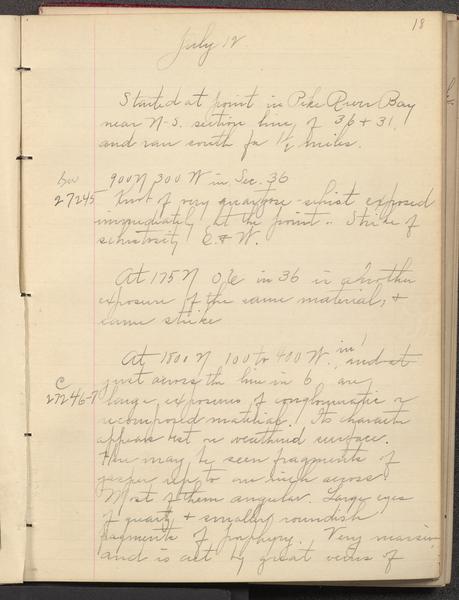 18
July 12
Started at point in Pike River Bay
near N-S. section line of 36 + 31,
and ran south for 1½ miles.
900 N, 300 W in Sec. 36
27245 Knob of very quartzose schist exposed
immediately at the point. Strike of
schistosity E + W.
At 175 N 0 W in 36 is another
exposure of the same material, +
same strike
At 1800 N 100 to 400 W. in, and at
just across the line in 6 are
27246-7 large exposures of conglomeratic or
recomposed material. Its character
appears out on weathered surface.
Here may be seen fragments of
jasper up to one inch across
Most of them angular. Large eyes
of quartz + smaller roundish
fragments of porphyry. Very massive
and is cut by great veins of